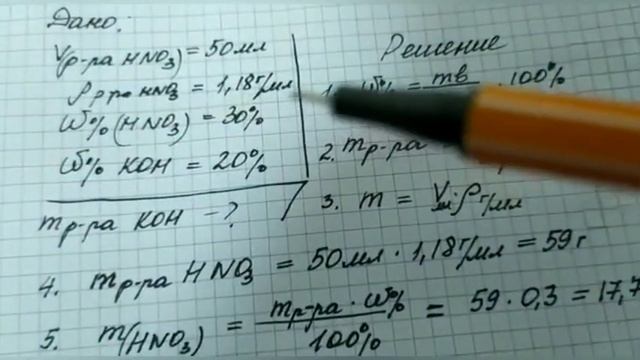 Дано:
V(р-ра HNO₃) = 50мл
ρ р-ра HNO₃ = 1,18г/мл
ω%(HNO₃) = 30%
ω% KOH = 20%
mр-ра KOH - ?
Решение
1. ω% = mв 100%
2. mр-ра
3. m = Vмл·ρг/мл
4. mр-ра HNO₃ = 50мл · 1,18г/мл = 59г
5. m(HNO₃) = mр-ра · ω% / 100% = 59 · 0,3 = 17,7